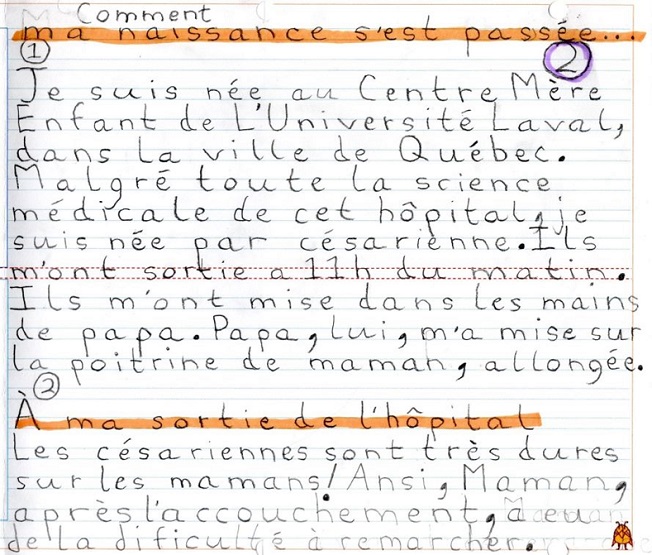 Comment
ma naissance s'est passée...
1
2
Je suis née au Centre Mère
Enfant de L'Université Laval,
dans la ville de Québec.
Malgré toute la science
médicale de cet hôpital, je
suis née par césarienne. Ils
m'ont sortie a 11h du matin.
Ils m'ont mise dans les mains
de papa. Papa, lui, m'a mise sur
la poitrine de maman, allongée.
2
À ma sortie de l'hôpital
Les césariennes sont très dures
sur les mamans! Ansi, Maman,
après l'accouchement, a eu
de la dificulté à remarcher.